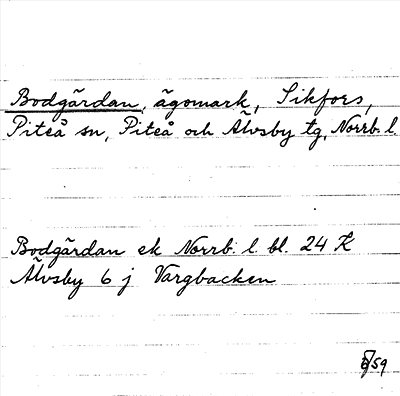 Bodgärdan, ägomark, Sikfors,
Piteå sn, Piteå och Älvsby tg, Norrb. l.
Bodgärdan ek Norrb. l. bl. 24 K
Älvsby 6 j Vargbacken
59